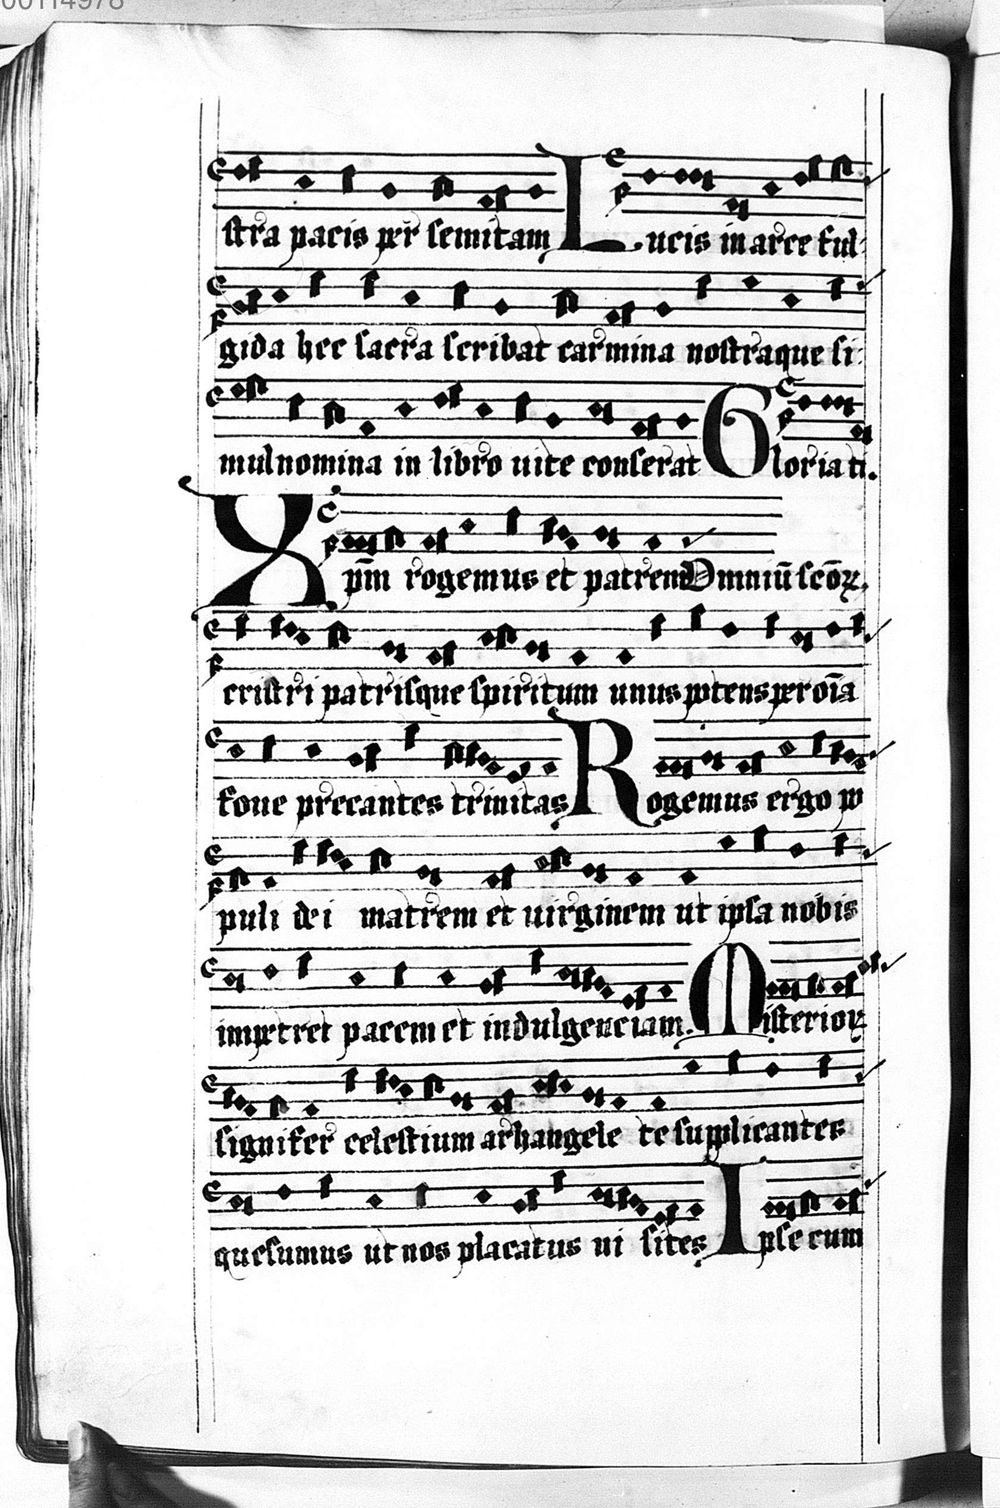 00114978
stra pacis per semitam Lucis in arce ful
gida hec sacra scribat carmina nostraque si
mul nomina in libro uite conserat Gloria ti.
Xp̄m rogemus et patrem Omniū scōꝝ,
cristri patrisque spiritum unus potens per oīa
foue precantes trinitas Rogemus ergo po
puli dei matrem et uirginem ut ipsa nobis
impetret pacem et indulgenciam. Misterioꝝ
signifer celestium arhangele te supplicantes
quesumus ut nos placatus ui sites Ipse cum